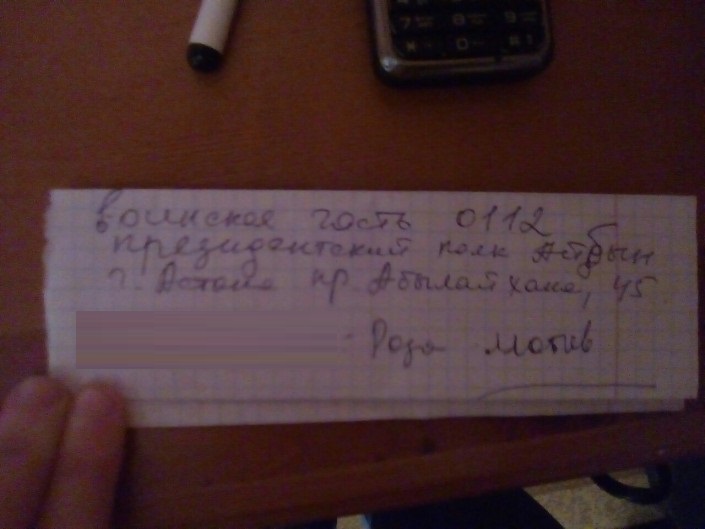 7 8 9
воинское часть 0112
президентский полк Айбын
г. Астана пр. Абылайхана, 45
Роза мотив